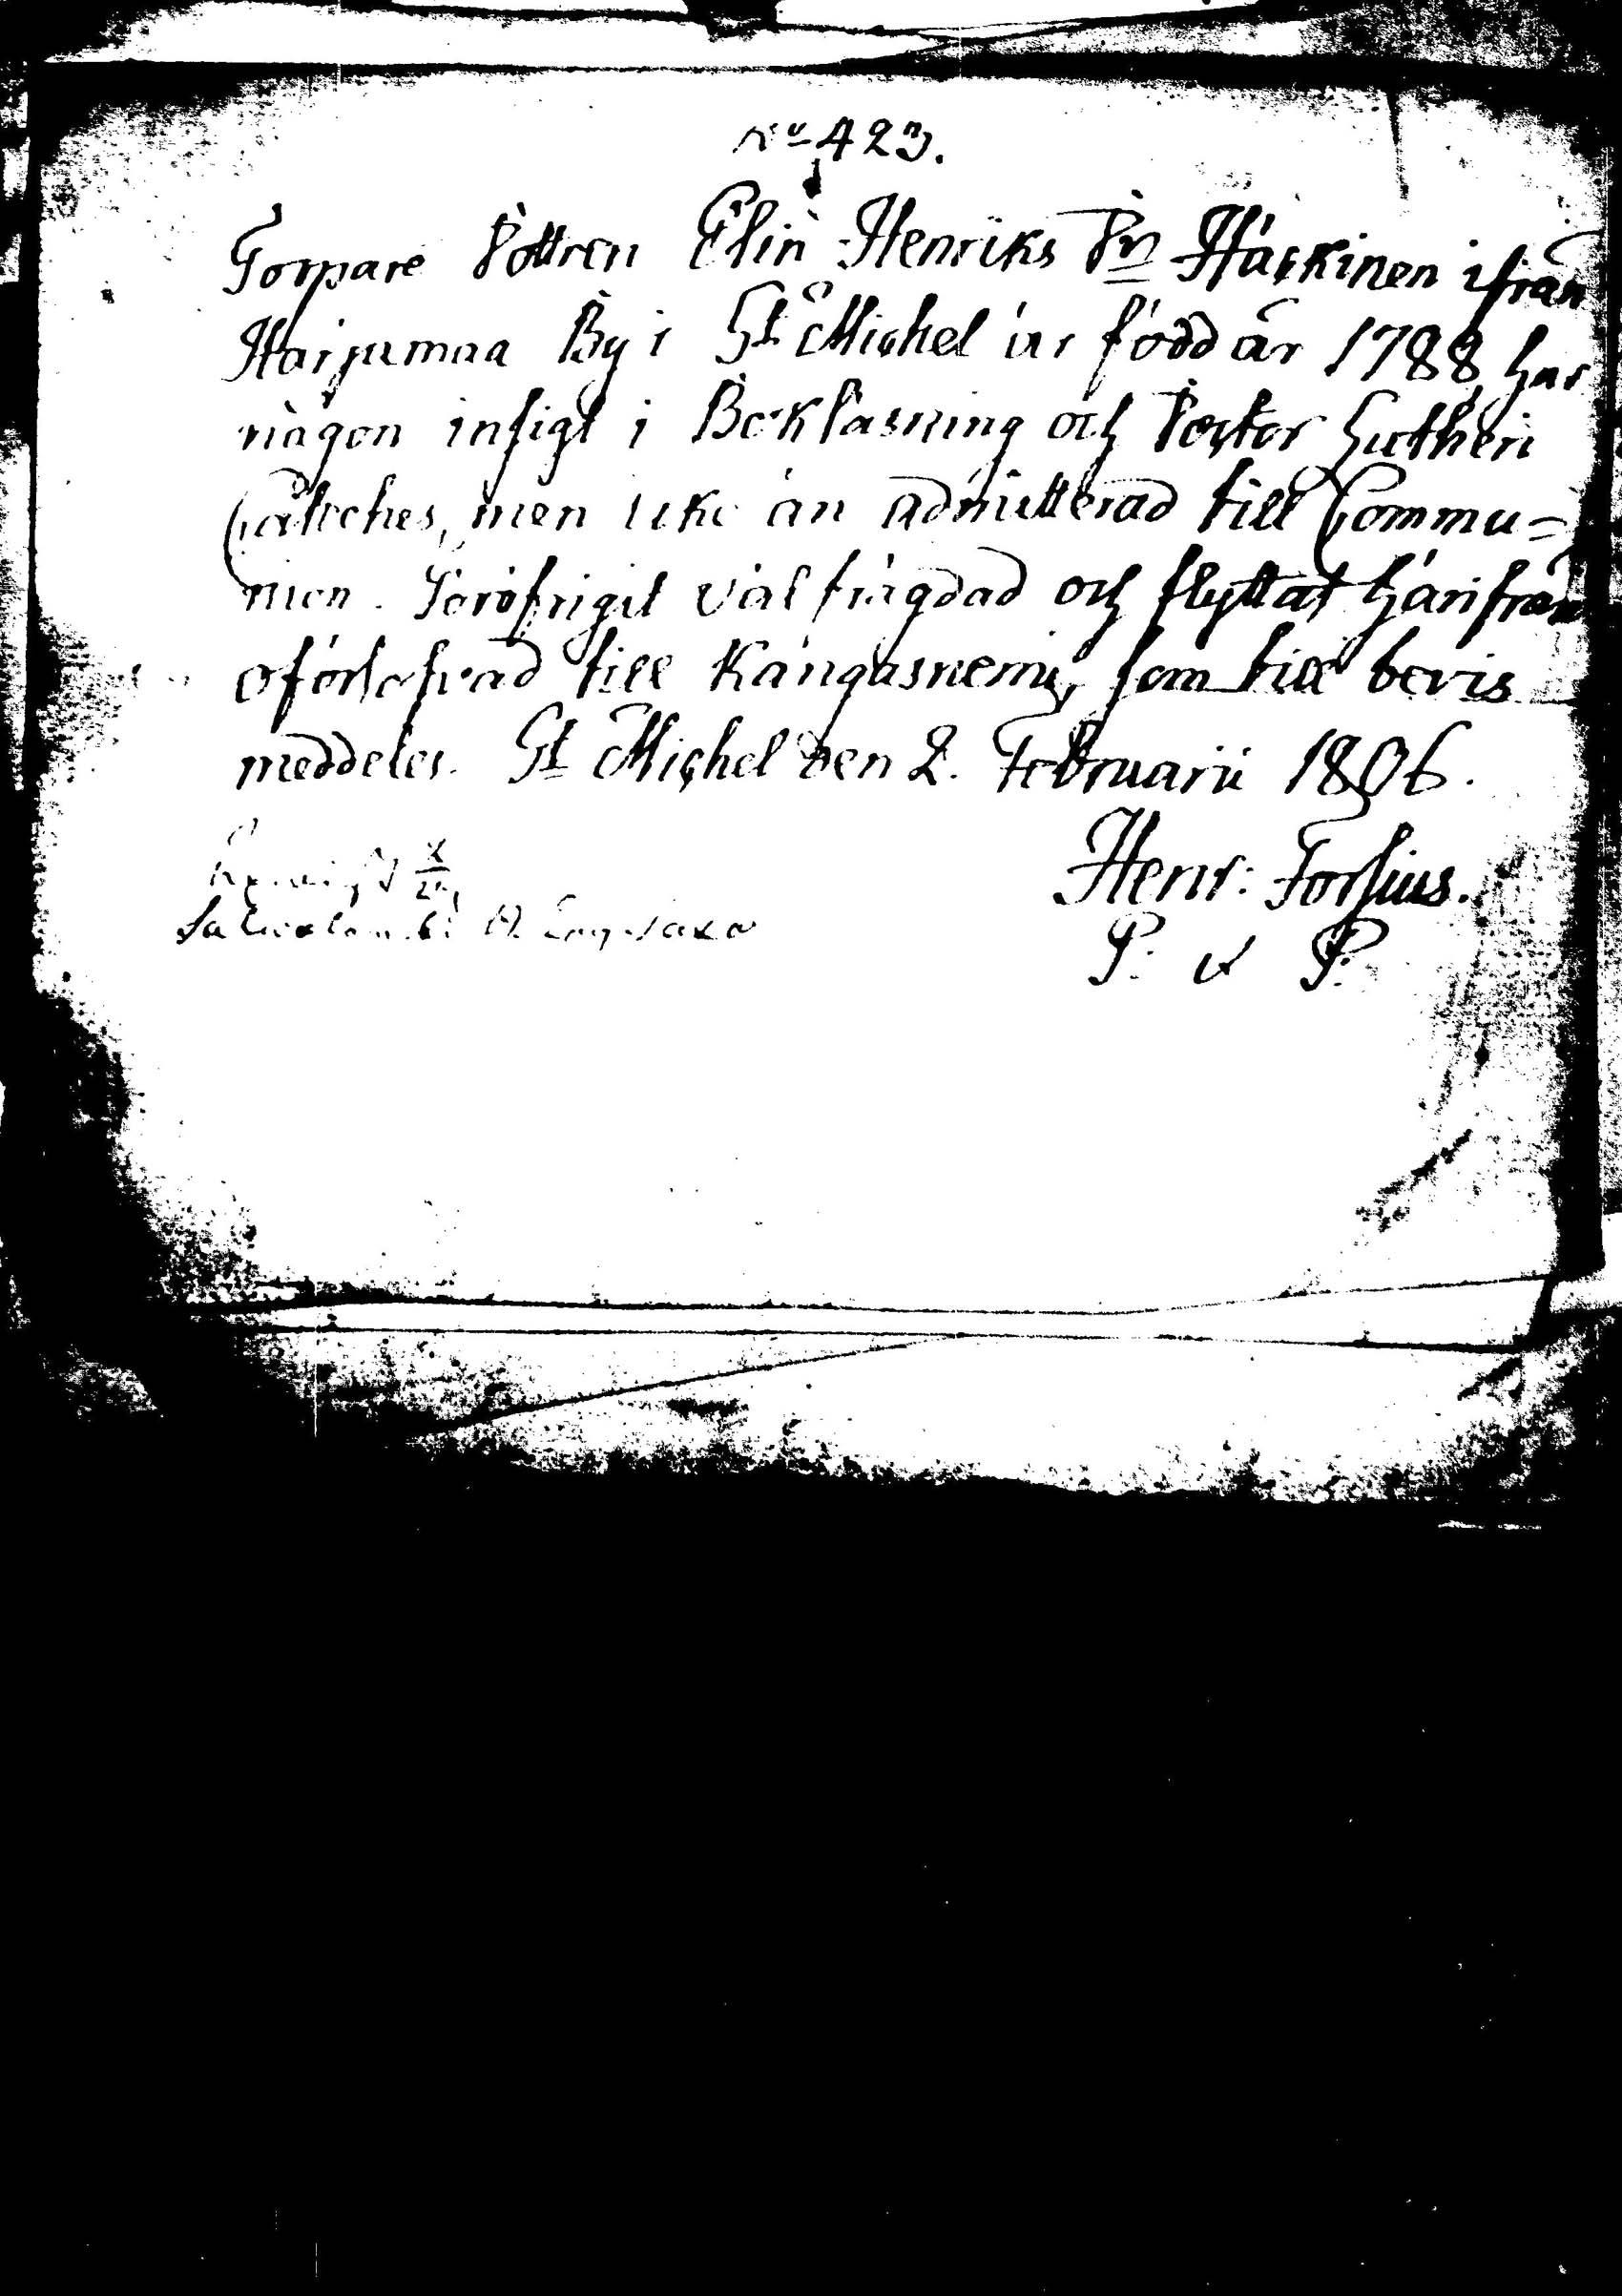 No 423.
Torpare Dottren Elin Henriks Dr Häckinen ifrån
Harjumaa By i St Michel är född år 1788, har
någon insigt i Bokläsning och Doctor Lutheri
Cateches, men icke än admitterad till Commu=
nion. Föröfrigit väl frägdad och flyttat härifrån
oförlofvad till Kangasniemi, som till bevis
meddeles. St Michel den 2. Februarii 1806.
Henr: Forsius.
P. & P.